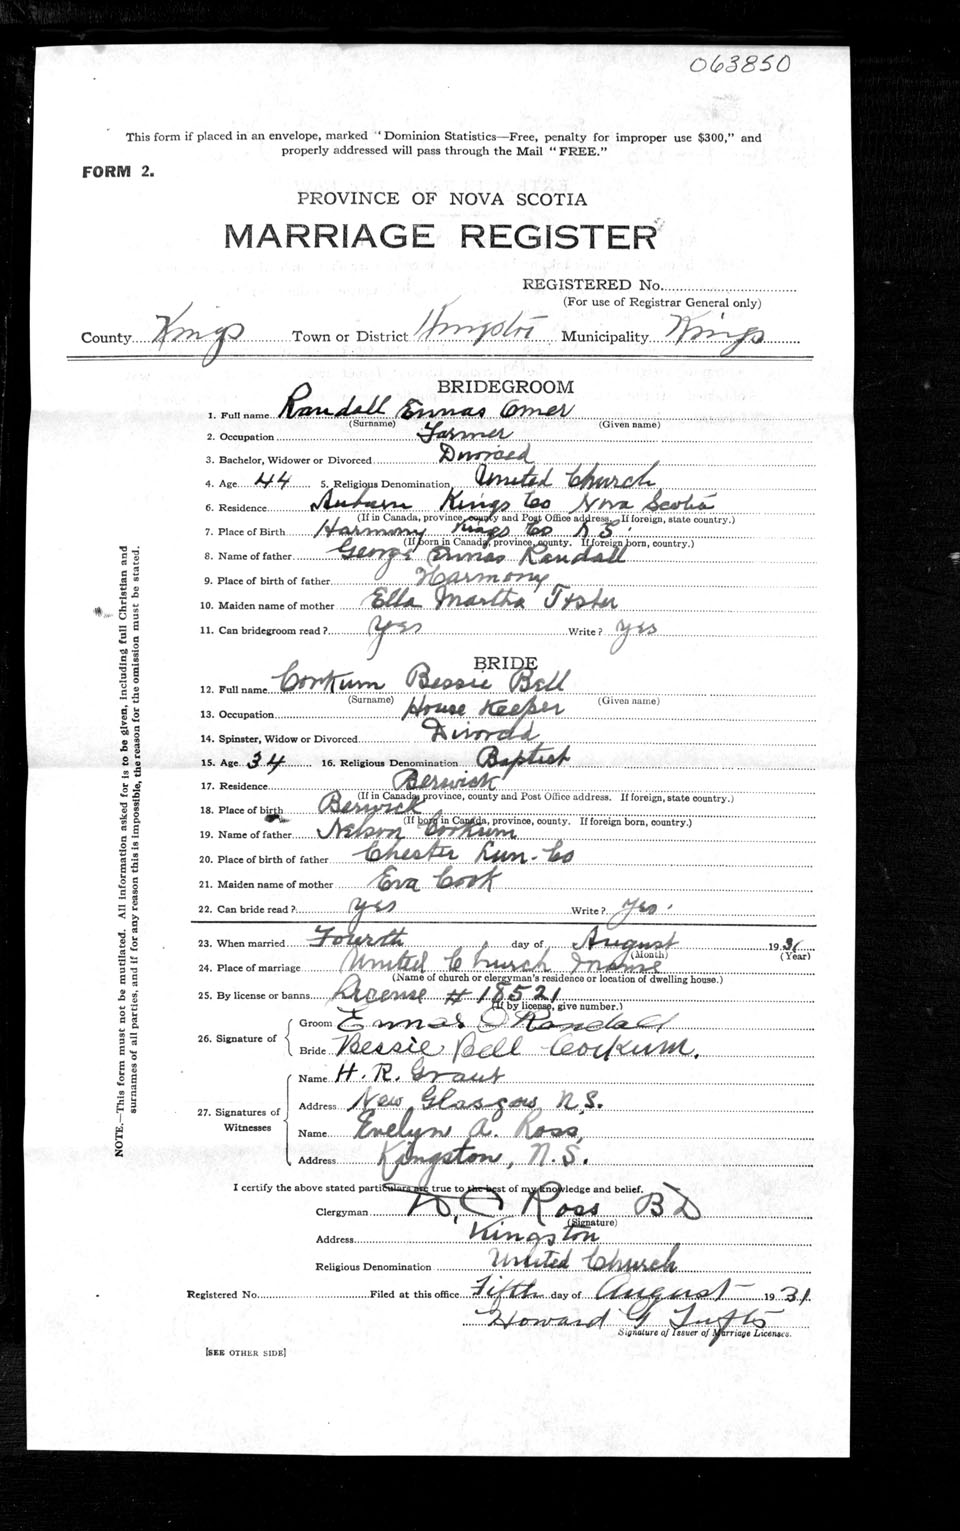 063850
This form if placed in an envelope, marked "Dominion Statistics—Free, penalty for improper use $300," and
properly addressed will pass through the Mail "FREE."
FORM 2.
PROVINCE OF NOVA SCOTIA
MARRIAGE REGISTER
REGISTERED No.
(For use of Registrar General only)
County Kings Town or District Kingston Municipality Kings
BRIDEGROOM
1. Full name Randall Ennas Omer
(Surname) (Given name)
2. Occupation Farmer
3. Bachelor, Widower or Divorced Divorced
4. Age 44 5. Religious Denomination United Church
6. Residence Auburn Kings Co Nova Scotia
(If in Canada, province, county and Post Office address. If foreign, state country.)
7. Place of Birth Harmony Kings Co N S
(If born in Canada, province, county. If foreign born, country.)
8. Name of father George Ennas Randall
9. Place of birth of father Harmony
10. Maiden name of mother Ella Martha
11. Can bridegroom read? Yes Write? Yes
BRIDE
12. Full name Corkum Bessie Bell
(Surname) (Given name)
13. Occupation House Keeper
14. Spinster, Widow or Divorced Divorced
15. Age 34 16. Religious Denomination Baptist
17. Residence Berwick
(If in Canada, province, county and Post Office address. If foreign, state country.)
18. Place of birth Berwick
(If born in Canada, province, county. If foreign born, country.)
19. Name of father Nelson Corkum
20. Place of birth of father Chester Lun. Co
21. Maiden name of mother Eva Cook
22. Can bride read? Yes Write? Yes
23. When married Fourth day of August 1931
(Month) (Year)
24. Place of marriage United Church Manse
(Name of church or clergyman's residence or location of dwelling house.)
25. By license or banns License # 18521
(If by license, give number.)
26. Signature of
Groom Ennas O Randall
Bride Bessie Bell Corkum.
27. Signatures of Witnesses
Name H. R. Grant
Address New Glasgow N.S.
Name Evelyn A. Ross,
Address Kingston, N.S.
I certify the above stated particulars are true to the best of my knowledge and belief.
Clergyman Ross BD
(Signature)
Address Kingston
Religious Denomination United Church
Registered No. Filed at this office Fifth day of August 1931.
Howard G Tufts
Signature of Issuer of Marriage Licenses.
[SEE OTHER SIDE]
NOTE.—This form must not be mutilated. All information asked for is to be given, including full Christian and
surnames of all parties, and if for any reason this is impossible, the reason for the omission must be stated.